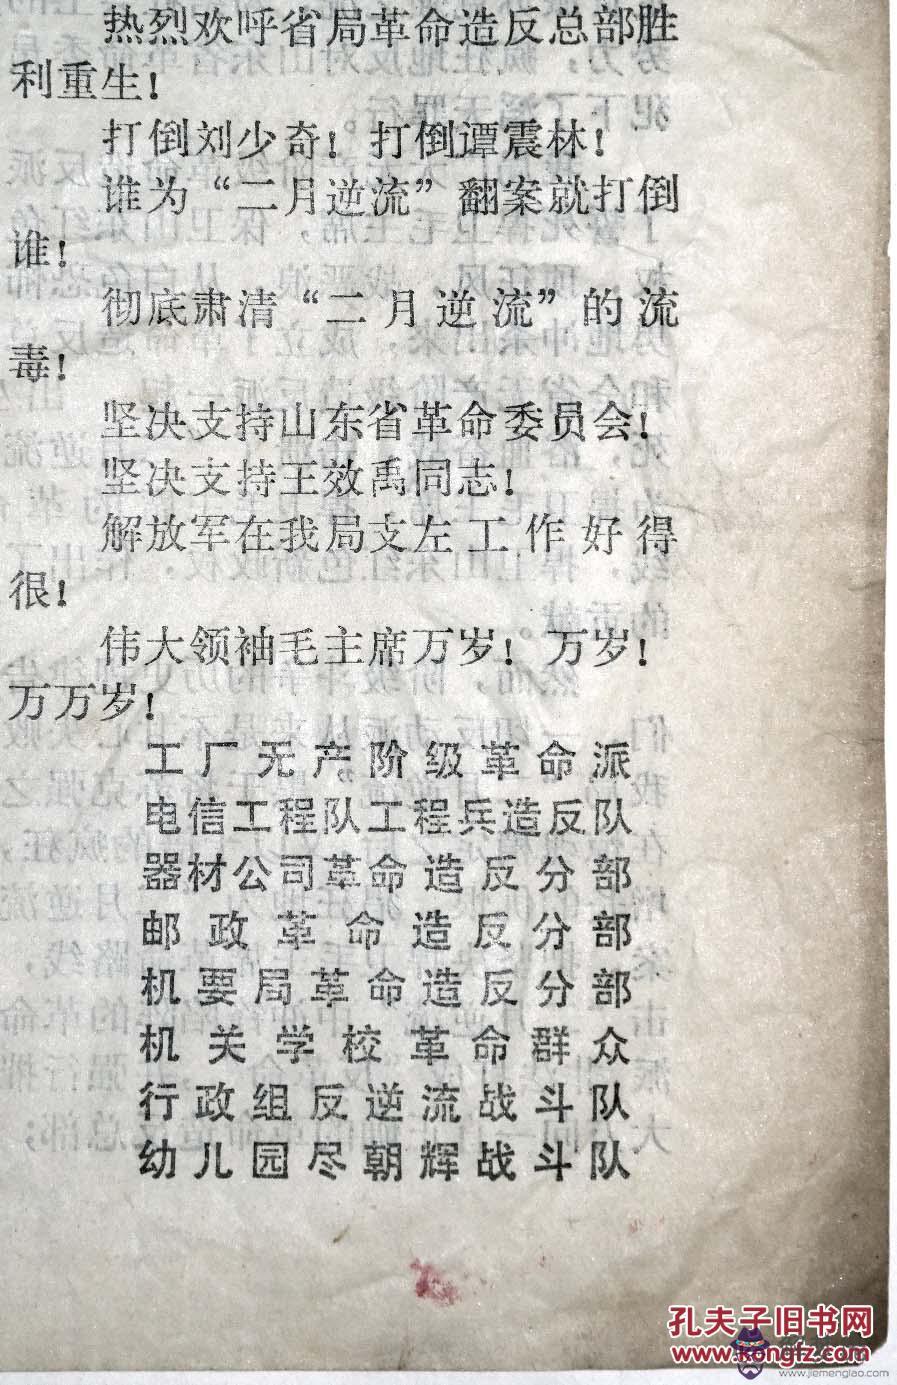 热烈欢呼省局革命造反总部胜
利重生！
打倒刘少奇！打倒谭震林！
谁为“二月逆流”翻案就打倒
谁！
彻底肃清“二月逆流”的流
毒！
坚决支持山东省革命委员会！
坚决支持王效禹同志！
解放军在我局支左工作好得
很！
伟大领袖毛主席万岁！万岁！
万万岁！
工厂无产阶级革命派
电信工程队工程兵造反队
器材公司革命造反分部
邮政革命造反分部
机要局革命造反分部
机关学校革命群众
行政组反逆流战斗队
幼儿园尽朝辉战斗队
孔夫子旧书网
www.kongfz.com
www.jiemengliao.com